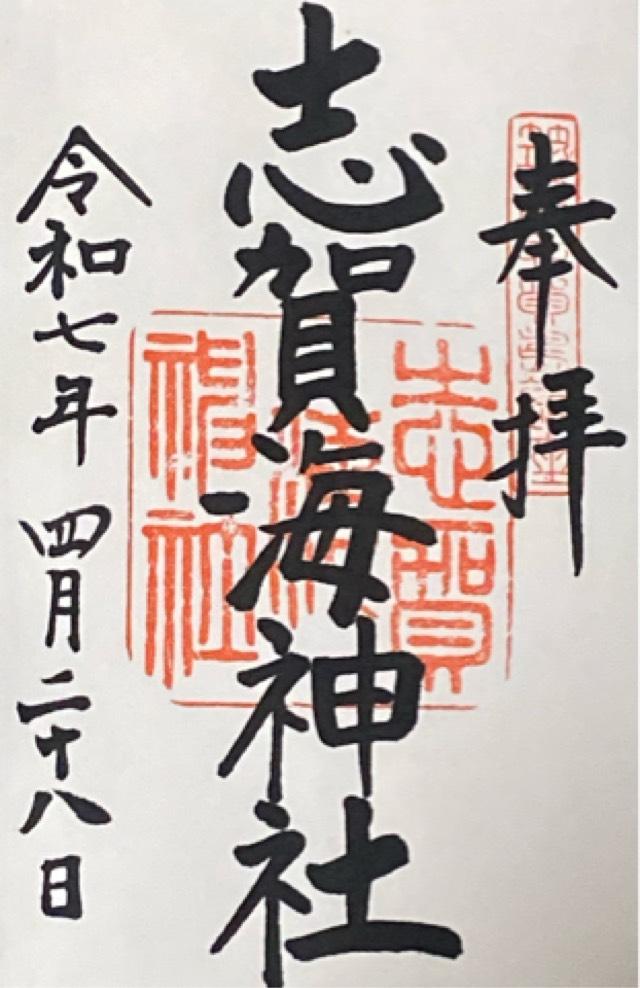 奉拝
志賀海神社
志賀海神社
令和七年 四月二十八日